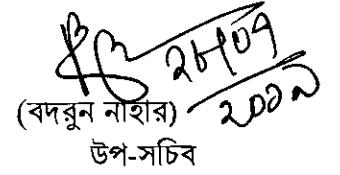 ২৮/০৭
২০১৯
(বদরুন নাহার)
উপ-সচিব